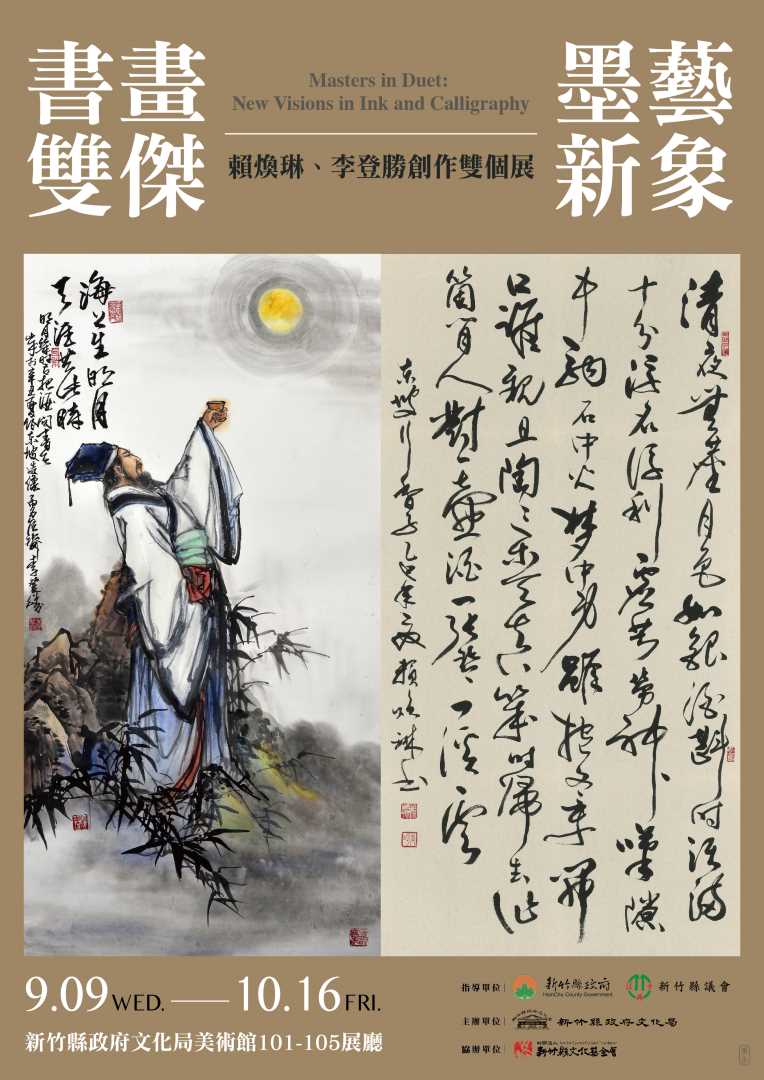 書畫
雙傑
Masters in Duet:
New Visions in Ink and Calligraphy
賴煥琳、李登勝創作雙個展
墨藝
新象
海上生明月
天涯共此時
明月幾時有把酒問青天
李登勝
清夜無塵月色如銀酒斟時須滿
十分浮名浮利虛苦勞神嘆隙
中駒石中火夢中身雖抱文章開
口誰親且陶陶樂天真幾時歸去作
箇閒人對一壺酒一張琴一溪雲
東坡行香子乙巳年夏賴煥琳書
9.09 WED. — 10.16 FRI.
新竹縣政府文化局美術館101-105展廳
指導單位 新竹縣政府 HsinChu County Government 新竹縣議會
主辦單位 新竹縣政府文化局
協辦單位 新竹縣文化基金會